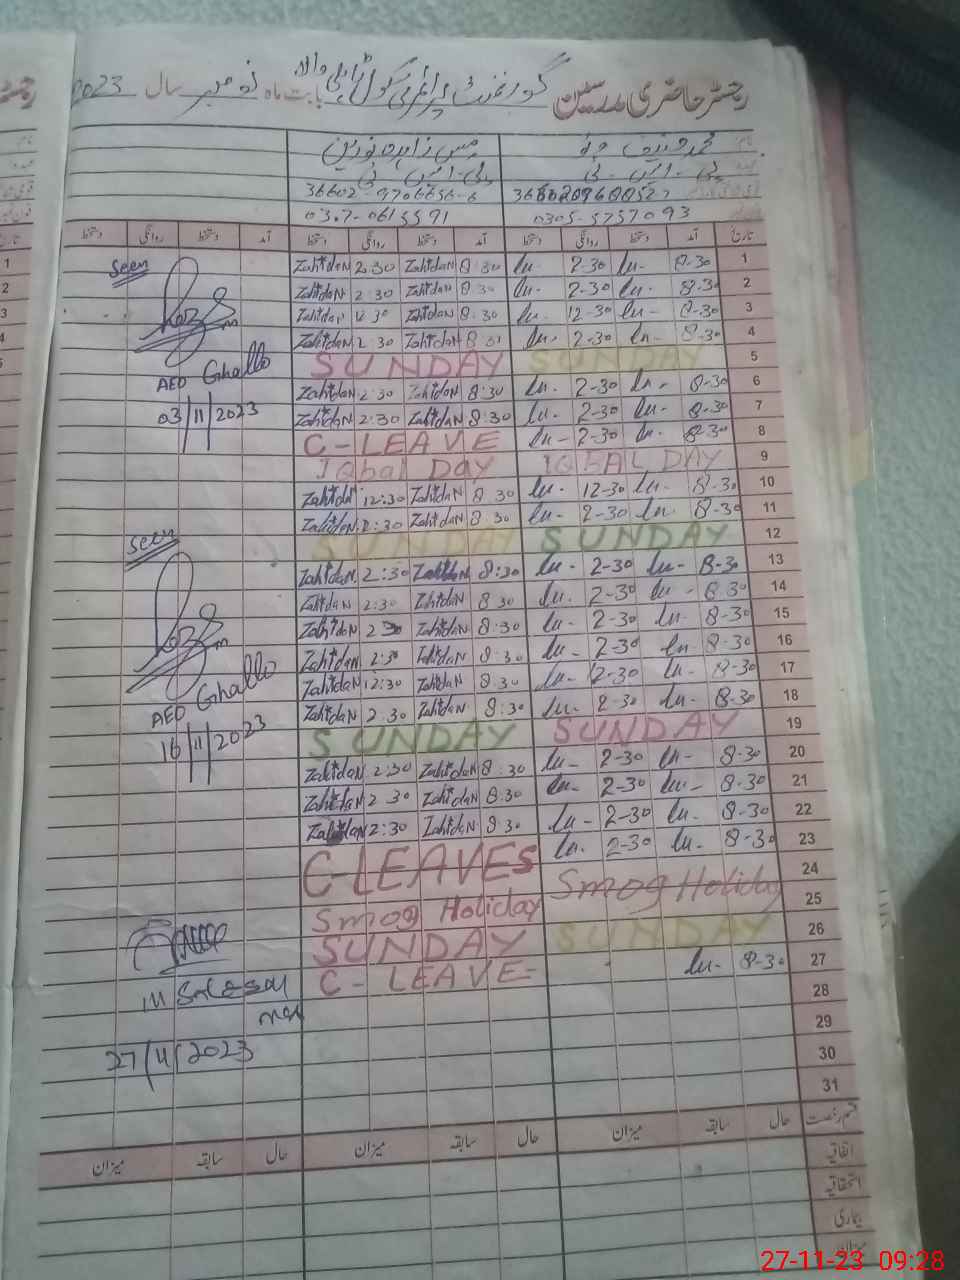 رجسٹر حاضری مدرسین گورنمنٹ پرائمری سکول والہ بابت ماہ نومبر سال 2023
محمد حنیف مس زاہدہ نورین
پی۔ایس۔ٹی پی۔ایس۔ٹی
36602-9706656-6
0305-5757093 0307-0615591
تاریخ آمد دستخط روانگی دستخط آمد دستخط روانگی دستخط آمد دستخط روانگی دستخط
1 8-30 2-30 8:30 ZahidaN 2:30 ZahidaN
Seen
2 8-30 2-30 8:30 ZahidaN 2:30 ZahidaN
3 8-30 12-30 8:30 ZahidaN ZahidaN
4 8-30 2-30 ZahidaN 2:30 ZahidaN
5 SUNDAY SUNDAY
AEO Ghallo
6 8-30 2-30 8:30 ZahidaN 2:30 ZahidaN
7 8-30 2-30 8:30 ZahidaN 2:30 ZahidaN
03/11/2023
8 8-30 2-30 C-LEAVE
9 IQBAL DAY Iqbal DAY
10 8-30 12-30 8:30 ZahidaN 12:30 ZahidaN
11 8-30 2-30 8:30 ZahidaN 2:30 ZahidaN
12 SUNDAY SUNDAY
Seen
13 8-30 2-30 8:30 ZahidaN 2:30 ZahidaN
14 8-30 2-30 8:30 ZahidaN 2:30 ZahidaN
15 8-30 2-30 8:30 ZahidaN 2:30 ZahidaN
16 8-30 2-30 8:30 ZahidaN 2:30 ZahidaN
17 8-30 12-30 8:30 ZahidaN 12:30 ZahidaN
18 8-30 2-30 8:30 ZahidaN 2:30 ZahidaN
AEO Ghallo
19 SUNDAY SUNDAY
16/11/2023
20 8-30 2-30 8:30 ZahidaN 2:30 ZahidaN
21 8-30 2-30 8:30 ZahidaN 2:30 ZahidaN
22 8-30 2-30 8:30 ZahidaN 2:30 ZahidaN
23 8-30 2-30 C-LEAVES
24 Smog Holiday
25 Smog Holiday
26 SUNDAY SUNDAY
27 8-30 C-LEAVE-
28
29
27/11/2023
30
31
قسم رخصت حال سابقہ میزان حال سابقہ میزان حال سابقہ میزان
اتفاقیہ
استحقاقیہ
بیماری
میزان
27-11-23 09:28